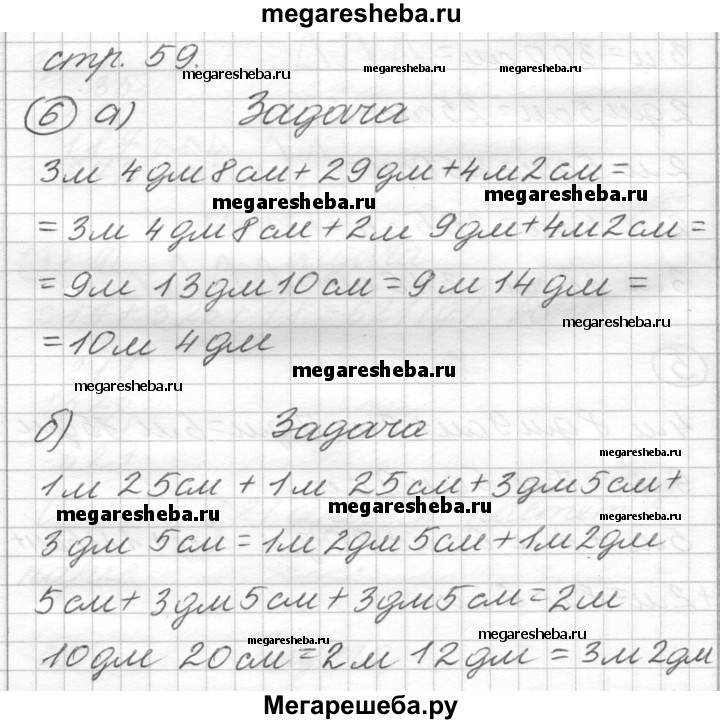 megaresheba.ru
стр. 59.
megaresheba.ru megaresheba.ru megaresheba.ru
6 а) Задача
3м 4дм 8см + 29дм + 4м 2см =
megaresheba.ru megaresheba.ru
= 3м 4дм 8см + 2м 9дм + 4м 2см =
= 9м 13дм 10см = 9м 14дм =
megaresheba.ru
= 10м 4дм
megaresheba.ru
megaresheba.ru
б) Задача
1м 25см + 1м 25см + 3дм 5см +
megaresheba.ru megaresheba.ru
3дм 5см = 1м 2дм 5см + 1м 2дм
5см + 3дм 5см + 3дм 5см = 2м
megaresheba.ru megaresheba.ru
10дм 20см = 2м 12дм = 3м 2дм
Мегарешеба.ру